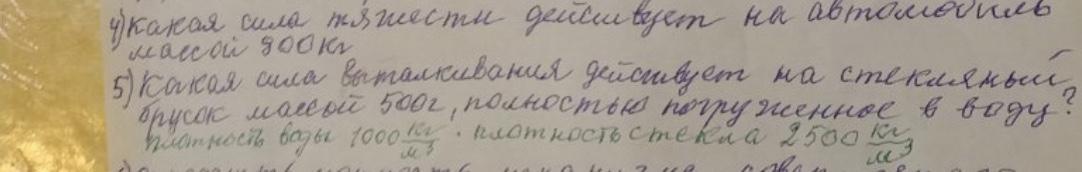 4) Какая сила тяжести действует на автомобиль
массой 900кг
5) Какая сила выталкивания действует на стекляный
брусок массой 500г, полностью погруженное в воду?
плотность воды 1000 кг/м³ · плотность стекла 2500 кг/м³